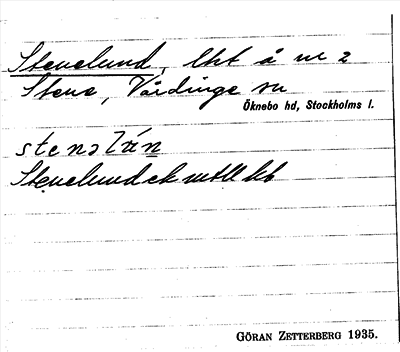 Stenelund, lht å nr 2
Stene, Vårdinge sn
Öknebo hd, Stockholms l.
stenəlún
Stenelund ek
GÖRAN ZETTERBERG 1935.